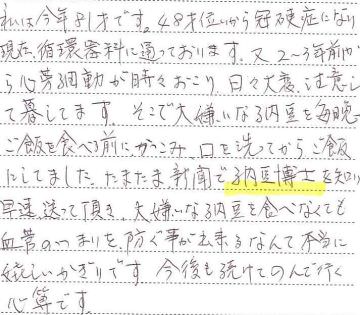 私は今年81才です。48才位いから冠硬症になり
現在、循環器科に通っております。又2~3年前か
ら心房細動が時々おこり、日々大変、注意し
て暮してます。そこで大嫌いな納豆を毎晩
ご飯を食べる前にかっこみ、口を洗ってからご飯
にしてました。たまたま新聞で納豆博士を知り
早速、送って頂き、大嫌いな納豆を食べなくても
血管のつまりを、防ぐ事が出来るなんて本当に
嬉しいかぎりです 今後も続けてのんで行く
心算です。